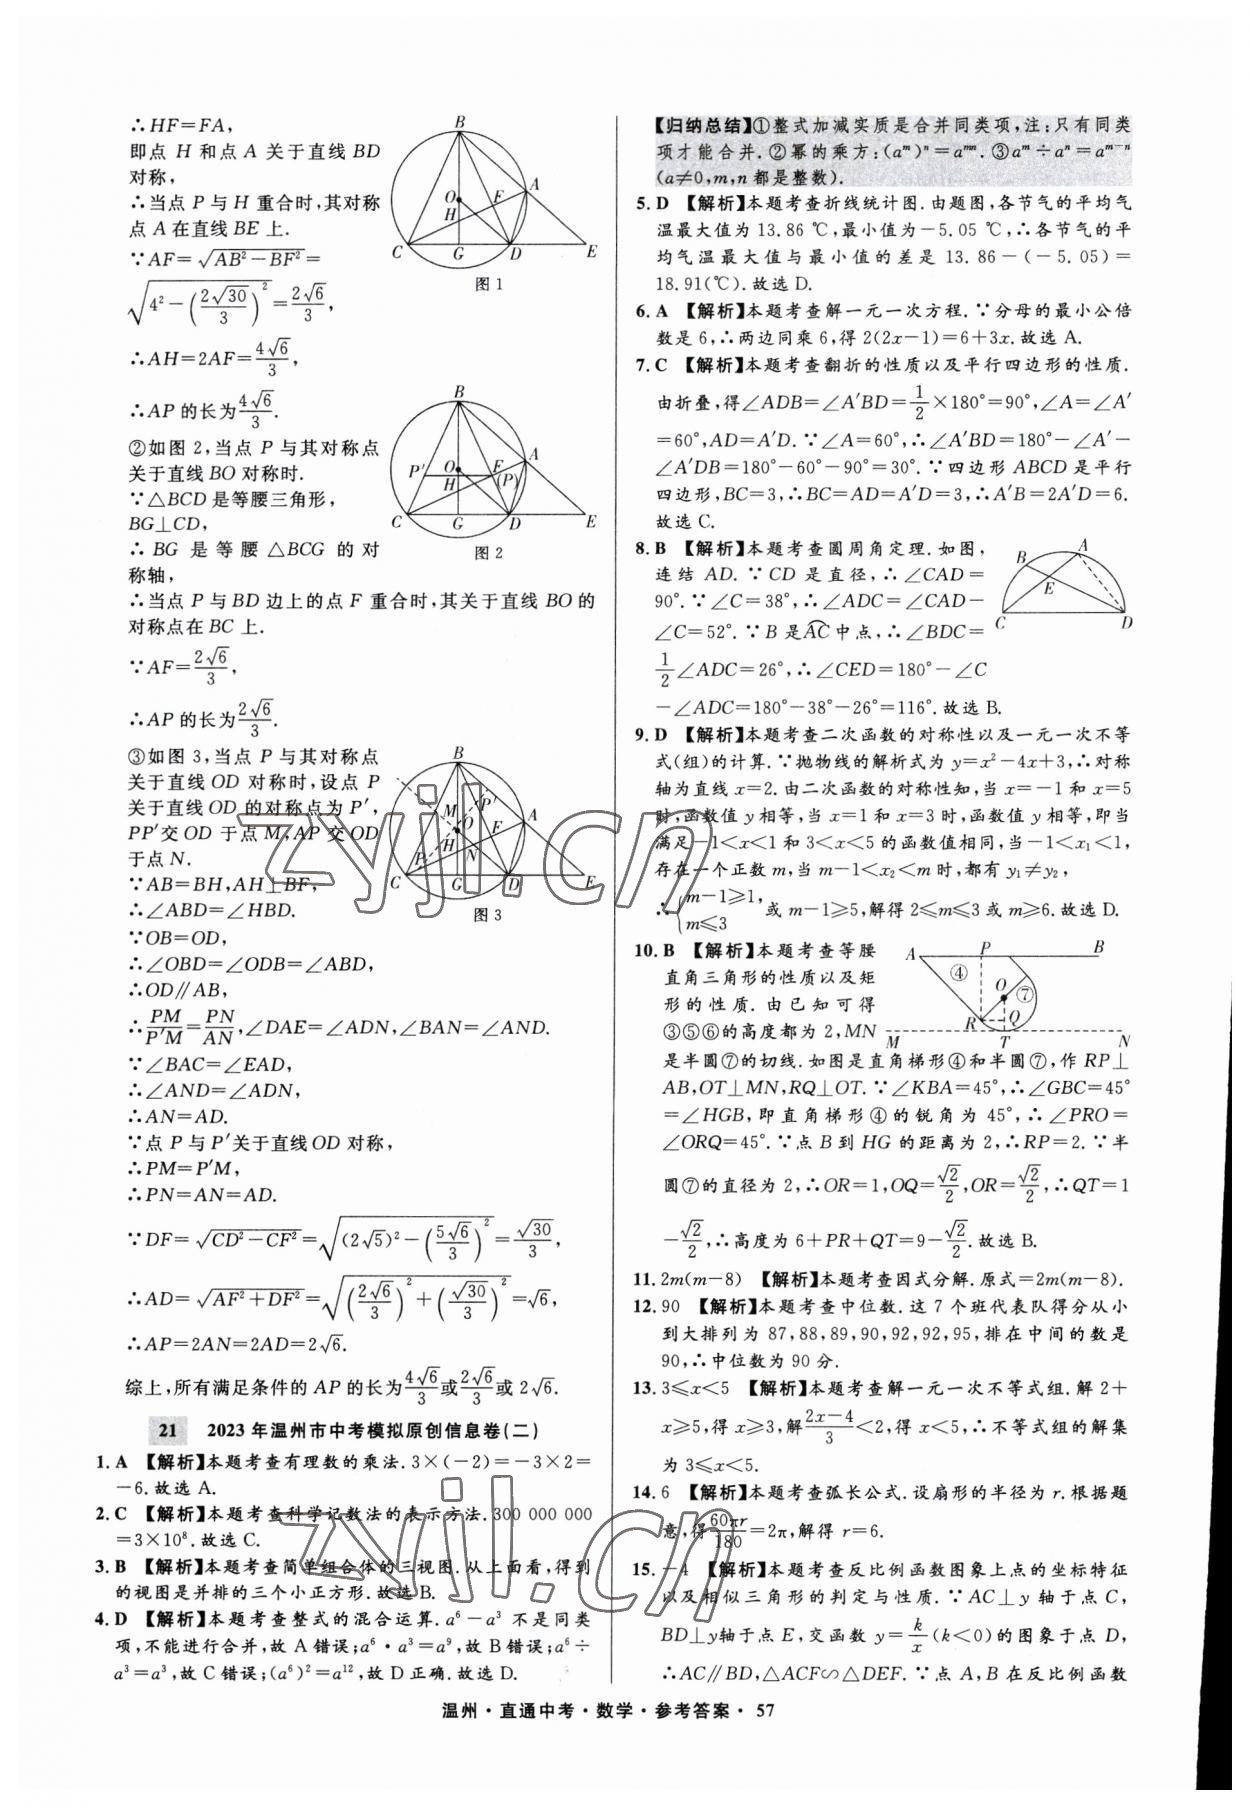 ∴HF=FA,
即点 H 和点 A 关于直线 BD
对称,
∴当点 P 与 H 重合时,其对称
点 A 在直线 BE 上.
∵AF=√(AB²-BF²)=
√(4²-(2√30/3)²)=2√6/3,
∴AH=2AF=4√6/3,
∴AP 的长为4√6/3.
图 1
②如图 2,当点 P 与其对称点
关于直线 BO 对称时.
∵△BCD 是等腰三角形,
BG⊥CD,
∴BG 是等腰△BCG 的对
称轴,
图 2
∴当点 P 与 BD 边上的点 F 重合时,其关于直线 BO 的
对称点在 BC 上.
∵AF=2√6/3,
∴AP 的长为2√6/3.
③如图 3,当点 P 与其对称点
关于直线 OD 对称时,设点 P
关于直线 OD 的对称点为 P′,
PP′交 OD 于点 M,AP 交 OD
于点 N.
∵AB=BH,AH⊥BF,
∴∠ABD=∠HBD.
图 3
∵OB=OD,
∴∠OBD=∠ODB=∠ABD,
∴OD∥AB,
∴PM/P′M=PN/AN,∠DAE=∠ADN,∠BAN=∠AND.
∵∠BAC=∠EAD,
∴∠AND=∠ADN,
∴AN=AD.
∵点 P 与 P′关于直线 OD 对称,
∴PM=P′M,
∴PN=AN=AD.
∵DF=√(CD²-CF²)=√((2√5)²-(5√6/3)²)=√30/3,
∴AD=√(AF²+DF²)=√((2√6/3)²+(√30/3)²)=√6,
∴AP=2AN=2AD=2√6.
综上,所有满足条件的 AP 的长为4√6/3或2√6/3或 2√6.
21 2023 年温州市中考模拟原创信息卷(二)
1. A 【解析】本题考查有理数的乘法.3×(-2)=-3×2=
-6.故选 A.
2. C 【解析】本题考查科学记数法的表示方法.300 000 000
=3×10⁸.故选 C.
3. B 【解析】本题考查简单组合体的三视图.从上面看,得到
的视图是并排的三个小正方形.故选 B.
4. D 【解析】本题考查整式的混合运算.a⁶-a³ 不是同类
项,不能进行合并,故 A 错误;a⁶·a³=a⁹,故 B 错误;a⁶÷
a³=a³,故 C 错误;(a⁶)²=a¹²,故 D 正确.故选 D.
【归纳总结】①整式加减实质是合并同类项,注:只有同类
项才能合并.②幂的乘方:(aᵐ)ⁿ=aᵐⁿ.③aᵐ÷aⁿ=aᵐ⁻ⁿ
(a≠0,m,n 都是整数).
5. D 【解析】本题考查折线统计图.由题图,各节气的平均气
温最大值为 13.86 ℃,最小值为-5.05 ℃,∴各节气的平
均气温最大值与最小值的差是 13.86-(-5.05)=
18.91(℃).故选 D.
6. A 【解析】本题考查解一元一次方程.∵分母的最小公倍
数是 6,∴两边同乘 6,得 2(2x-1)=6+3x.故选 A.
7. C 【解析】本题考查翻折的性质以及平行四边形的性质.
由折叠,得∠ADB=∠A′BD=1/2×180°=90°,∠A=∠A′
=60°,AD=A′D.∵∠A=60°,∴∠A′BD=180°-∠A′-
∠A′DB=180°-60°-90°=30°.∵四边形 ABCD 是平行
四边形,BC=3,∴BC=AD=A′D=3,∴A′B=2A′D=6.
故选 C.
8. B 【解析】本题考查圆周角定理.如图,
连结 AD.∵CD 是直径,∴∠CAD=
90°.∵∠C=38°,∴∠ADC=∠CAD-
∠C=52°.∵B 是A͡C中点,∴∠BDC=
1/2∠ADC=26°,∴∠CED=180°-∠C
-∠ADC=180°-38°-26°=116°.故选 B.
9. D 【解析】本题考查二次函数的对称性以及一元一次不等
式(组)的计算.∵抛物线的解析式为 y=x²-4x+3,∴对称
轴为直线 x=2.由二次函数的对称性知,当 x=-1 和 x=5
时,函数值 y 相等,当 x=1 和 x=3 时,函数值 y 相等,即当
满足-1<x<1 和 3<x<5 的函数值相同,当-1<x₁<1,
存在一个正数 m,当 m-1<x₂<m 时,都有 y₁≠y₂,
∴{m-1≥1, m≤3 或 m-1≥5,解得 2≤m≤3 或 m≥6.故选 D.
10. B 【解析】本题考查等腰
直角三角形的性质以及矩
形的性质.由已知可得
③⑤⑥的高度都为 2,MN
是半圆⑦的切线.如图是直角梯形④和半圆⑦,作 RP⊥
AB,OT⊥MN,RQ⊥OT.∵∠KBA=45°,∴∠GBC=45°
=∠HGB,即直角梯形④的锐角为 45°,∴∠PRO=
∠ORQ=45°.∵点 B 到 HG 的距离为 2,∴RP=2.∵半
圆⑦的直径为 2,∴OR=1,OQ=√2/2,OR=√2/2,∴QT=1
-√2/2,∴高度为 6+PR+QT=9-√2/2.故选 B.
11. 2m(m-8) 【解析】本题考查因式分解.原式=2m(m-8).
12. 90 【解析】本题考查中位数.这 7 个班代表队得分从小
到大排列为 87,88,89,90,92,92,95,排在中间的数是
90,∴中位数为 90 分.
13. 3≤x<5 【解析】本题考查解一元一次不等式组.解 2+
x≥5,得 x≥3,解(2x-4)/3<2,得 x<5,∴不等式组的解集
为 3≤x<5.
14. 6 【解析】本题考查弧长公式.设扇形的半径为 r.根据题
意,得60πr/180=2π,解得 r=6.
15. -4 【解析】本题考查反比例函数图象上点的坐标特征
以及相似三角形的判定与性质.∵AC⊥y 轴于点 C,
BD⊥y轴于点 E,交函数 y=k/x(k<0)的图象于点 D,
∴AC∥BD,△ACF∽△DEF.∵点 A,B 在反比例函数
温州·直通中考·数学·参考答案· 57
zyjl.cn
zyjl.cn